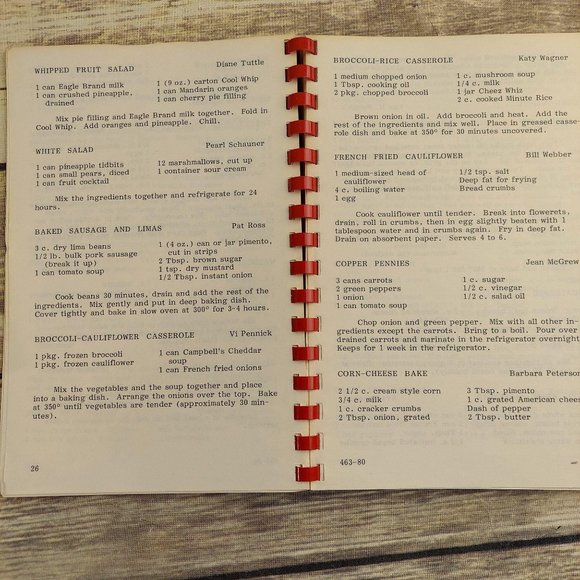 WHIPPED FRUIT SALAD Diane Tuttle
1 can Eagle Brand milk 1 (9 oz.) carton Cool Whip
1 can crushed pineapple, 1 can Mandarin oranges
drained 1 can cherry pie filling
Mix pie filling and Eagle Brand milk together. Fold in
Cool Whip. Add oranges and pineapple. Chill.
WHITE SALAD Pearl Schauner
1 can pineapple tidbits 12 marshmallows, cut up
1 can small pears, diced 1 container sour cream
1 can fruit cocktail
Mix the ingredients together and refrigerate for 24
hours.
BAKED SAUSAGE AND LIMAS Pat Ross
3 c. dry lima beans 1 (4 oz.) can or jar pimento,
1/2 lb. bulk pork sausage cut in strips
(break it up) 2 Tbsp. brown sugar
1 can tomato soup 1 tsp. dry mustard
1/2 Tbsp. instant onion
Cook beans 30 minutes, drain and add the rest of the
ingredients. Mix gently and put in deep baking dish.
Cover tightly and bake in slow oven at 300° for 3-4 hours.
BROCCOLI-CAULIFLOWER CASSEROLE Vi Pennick
1 pkg. frozen broccoli 1 can Campbell's Cheddar
1 pkg. frozen cauliflower soup
1 can French fried onions
Mix the vegetables and the soup together and place
into a baking dish. Arrange the onions over the top. Bake
at 350° until vegetables are tender (approximately 30 min-
utes).
26
BROCCOLI-RICE CASSEROLE Katy Wagner
1 medium chopped onion 1 c. mushroom soup
1 Tbsp. cooking oil 1/4 c. milk
2 pkg. chopped broccoli 1 jar Cheez Whiz
2 c. cooked Minute Rice
Brown onion in oil. Add broccoli and heat. Add the
rest of the ingredients and mix well. Place in greased casse-
role dish and bake at 350° for 30 minutes uncovered.
FRENCH FRIED CAULIFLOWER Bill Webber
1 medium-sized head of 1/2 tsp. salt
cauliflower Deep fat for frying
4 c. boiling water Bread crumbs
1 egg
Cook cauliflower until tender. Break into flowerets,
drain, roll in crumbs, then in egg slightly beaten with 1
tablespoon water and in crumbs again. Fry in deep fat.
Drain on absorbent paper. Serves 4 to 6.
COPPER PENNIES Jean McGrew
3 cans carrots 1 c. sugar
2 green peppers 1/2 c. vinegar
1 onion 1/2 c. salad oil
1 can tomato soup
Chop onion and green pepper. Mix with all other in-
gredients except the carrots. Bring to a boil. Pour over
drained carrots and marinate in the refrigerator overnight
Keeps for 1 week in the refrigerator.
CORN-CHEESE BAKE Barbara Peterson
2 1/2 c. cream style corn 3 Tbsp. pimento
3/4 c. milk 1 c. grated American chees
1 c. cracker crumbs Dash of pepper
2 Tbsp. onion, grated 2 Tbsp. butter
463-80